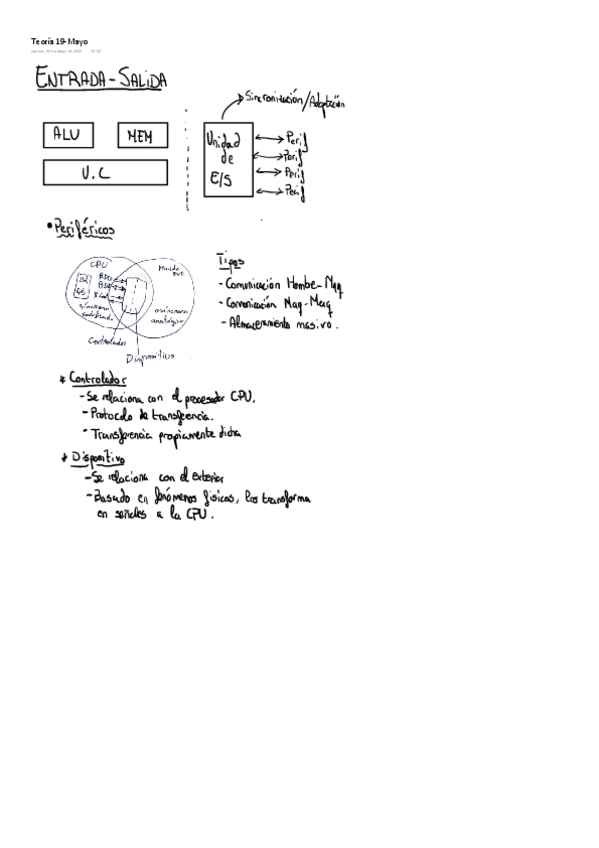 Teoría 19-Mayo
ENTRADA-SALIDA
Sincronización/Adaptación
ALU
MEM
U.C
Unidad
de
E/S
Perif
Perif
Perif
Perif
Periféricos
CPU
Mundo
ext
BD
síncrono
asíncrono
analógico
Controlador
Dispositivo
Tipos
- Comunicación Hombe-Maq
- Comunicación Maq-Maq
- Almacenamiento masivo.
* Controlador
- Se relaciona con el procesador CPU.
- Protocolo de transferencia.
- Transferencia propiamente dicha
* Dispositivo
- Se relaciona con el exterior
- Basado en fenómenos físicos, los transforma
en señales a la CPU.